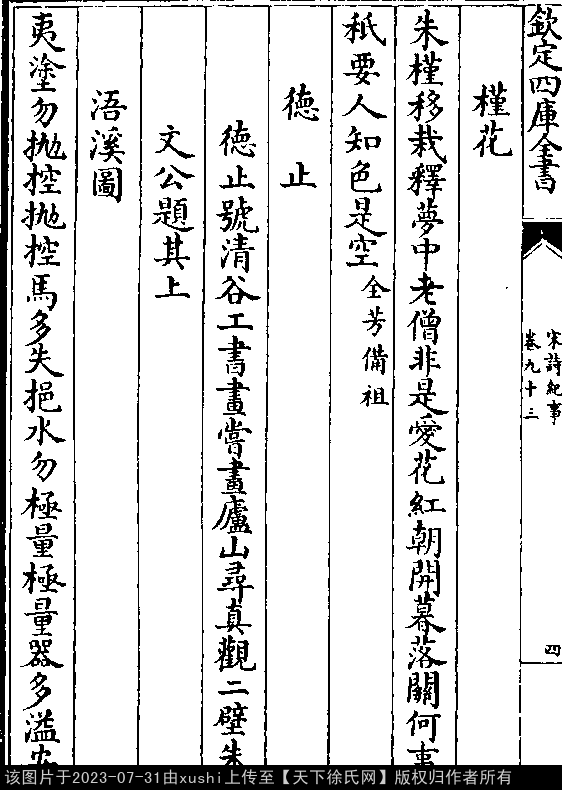 欽定四庫全書
宋詩紀事
卷九十三
四
槿花
朱槿移栽釋夢中老僧非是愛花紅朝開暮落關何事
秖要人知色是空全芳備祖
德止
德止號清谷工書畫嘗畫廬山尋真觀二壁朱
文公題其上
浯溪圖
夷塗勿拋控拋控馬多失挹水勿極量極量器多溢
该图片于2023-07-31由xushi上传至【天下徐氏网】版权归作者所有